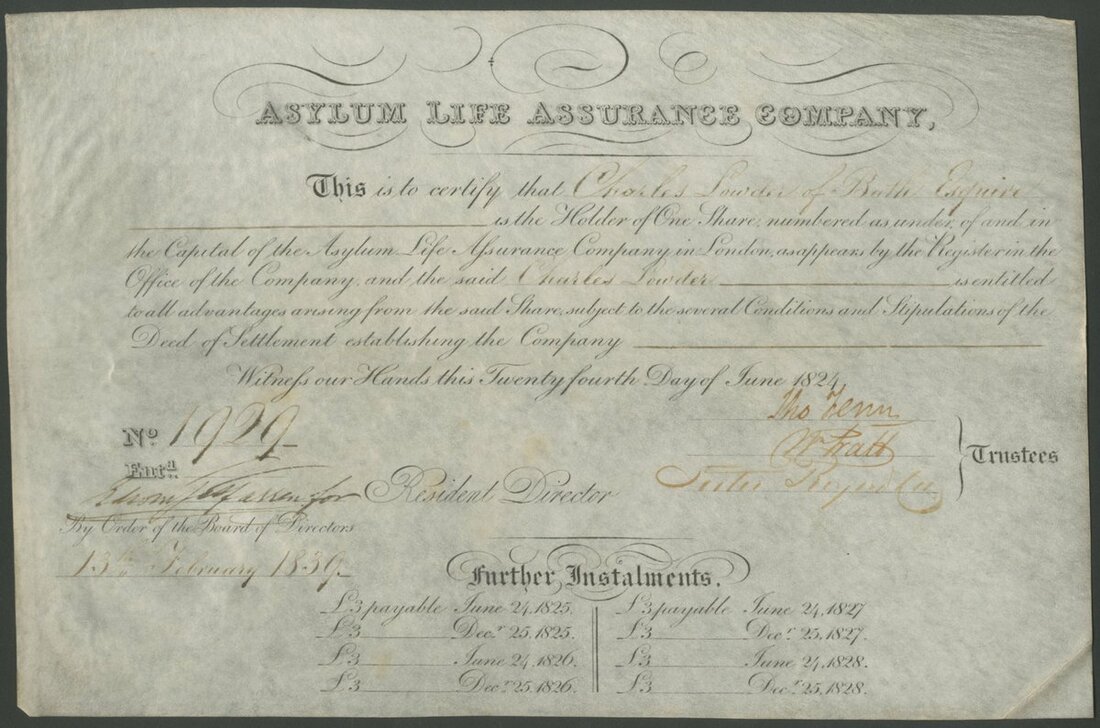 ASYLUM LIFE ASSURANCE COMPANY,
This is to certify that Charles Lowder of Bath Esquire
is the Holder of One Share, numbered as under, of and in
the Capital of the Asylum Life Assurance Company, in London, as appears by the Register in the
Office of the Company, and the said Charles Lowder is entitled
to all advantages arising from the said Share, subject to the several Conditions and Stipulations of the
Deed of Settlement establishing the Company
Witness our Hands this Twenty fourth Day of June 1824,
Tho Fenn
No. 1929
W Pratt
Trustees
Entd.
Resident Director
By Order of the Board of Directors
13th February 1839
Further Instalments.
£3 payable June 24, 1825. £3 payable June 24, 1827
£3 Decr. 25, 1825. £3 Decr. 25, 1827.
£3 June 24, 1826. £3 June 24, 1828.
£3 Decr. 25, 1826. £3 Decr. 25, 1828.